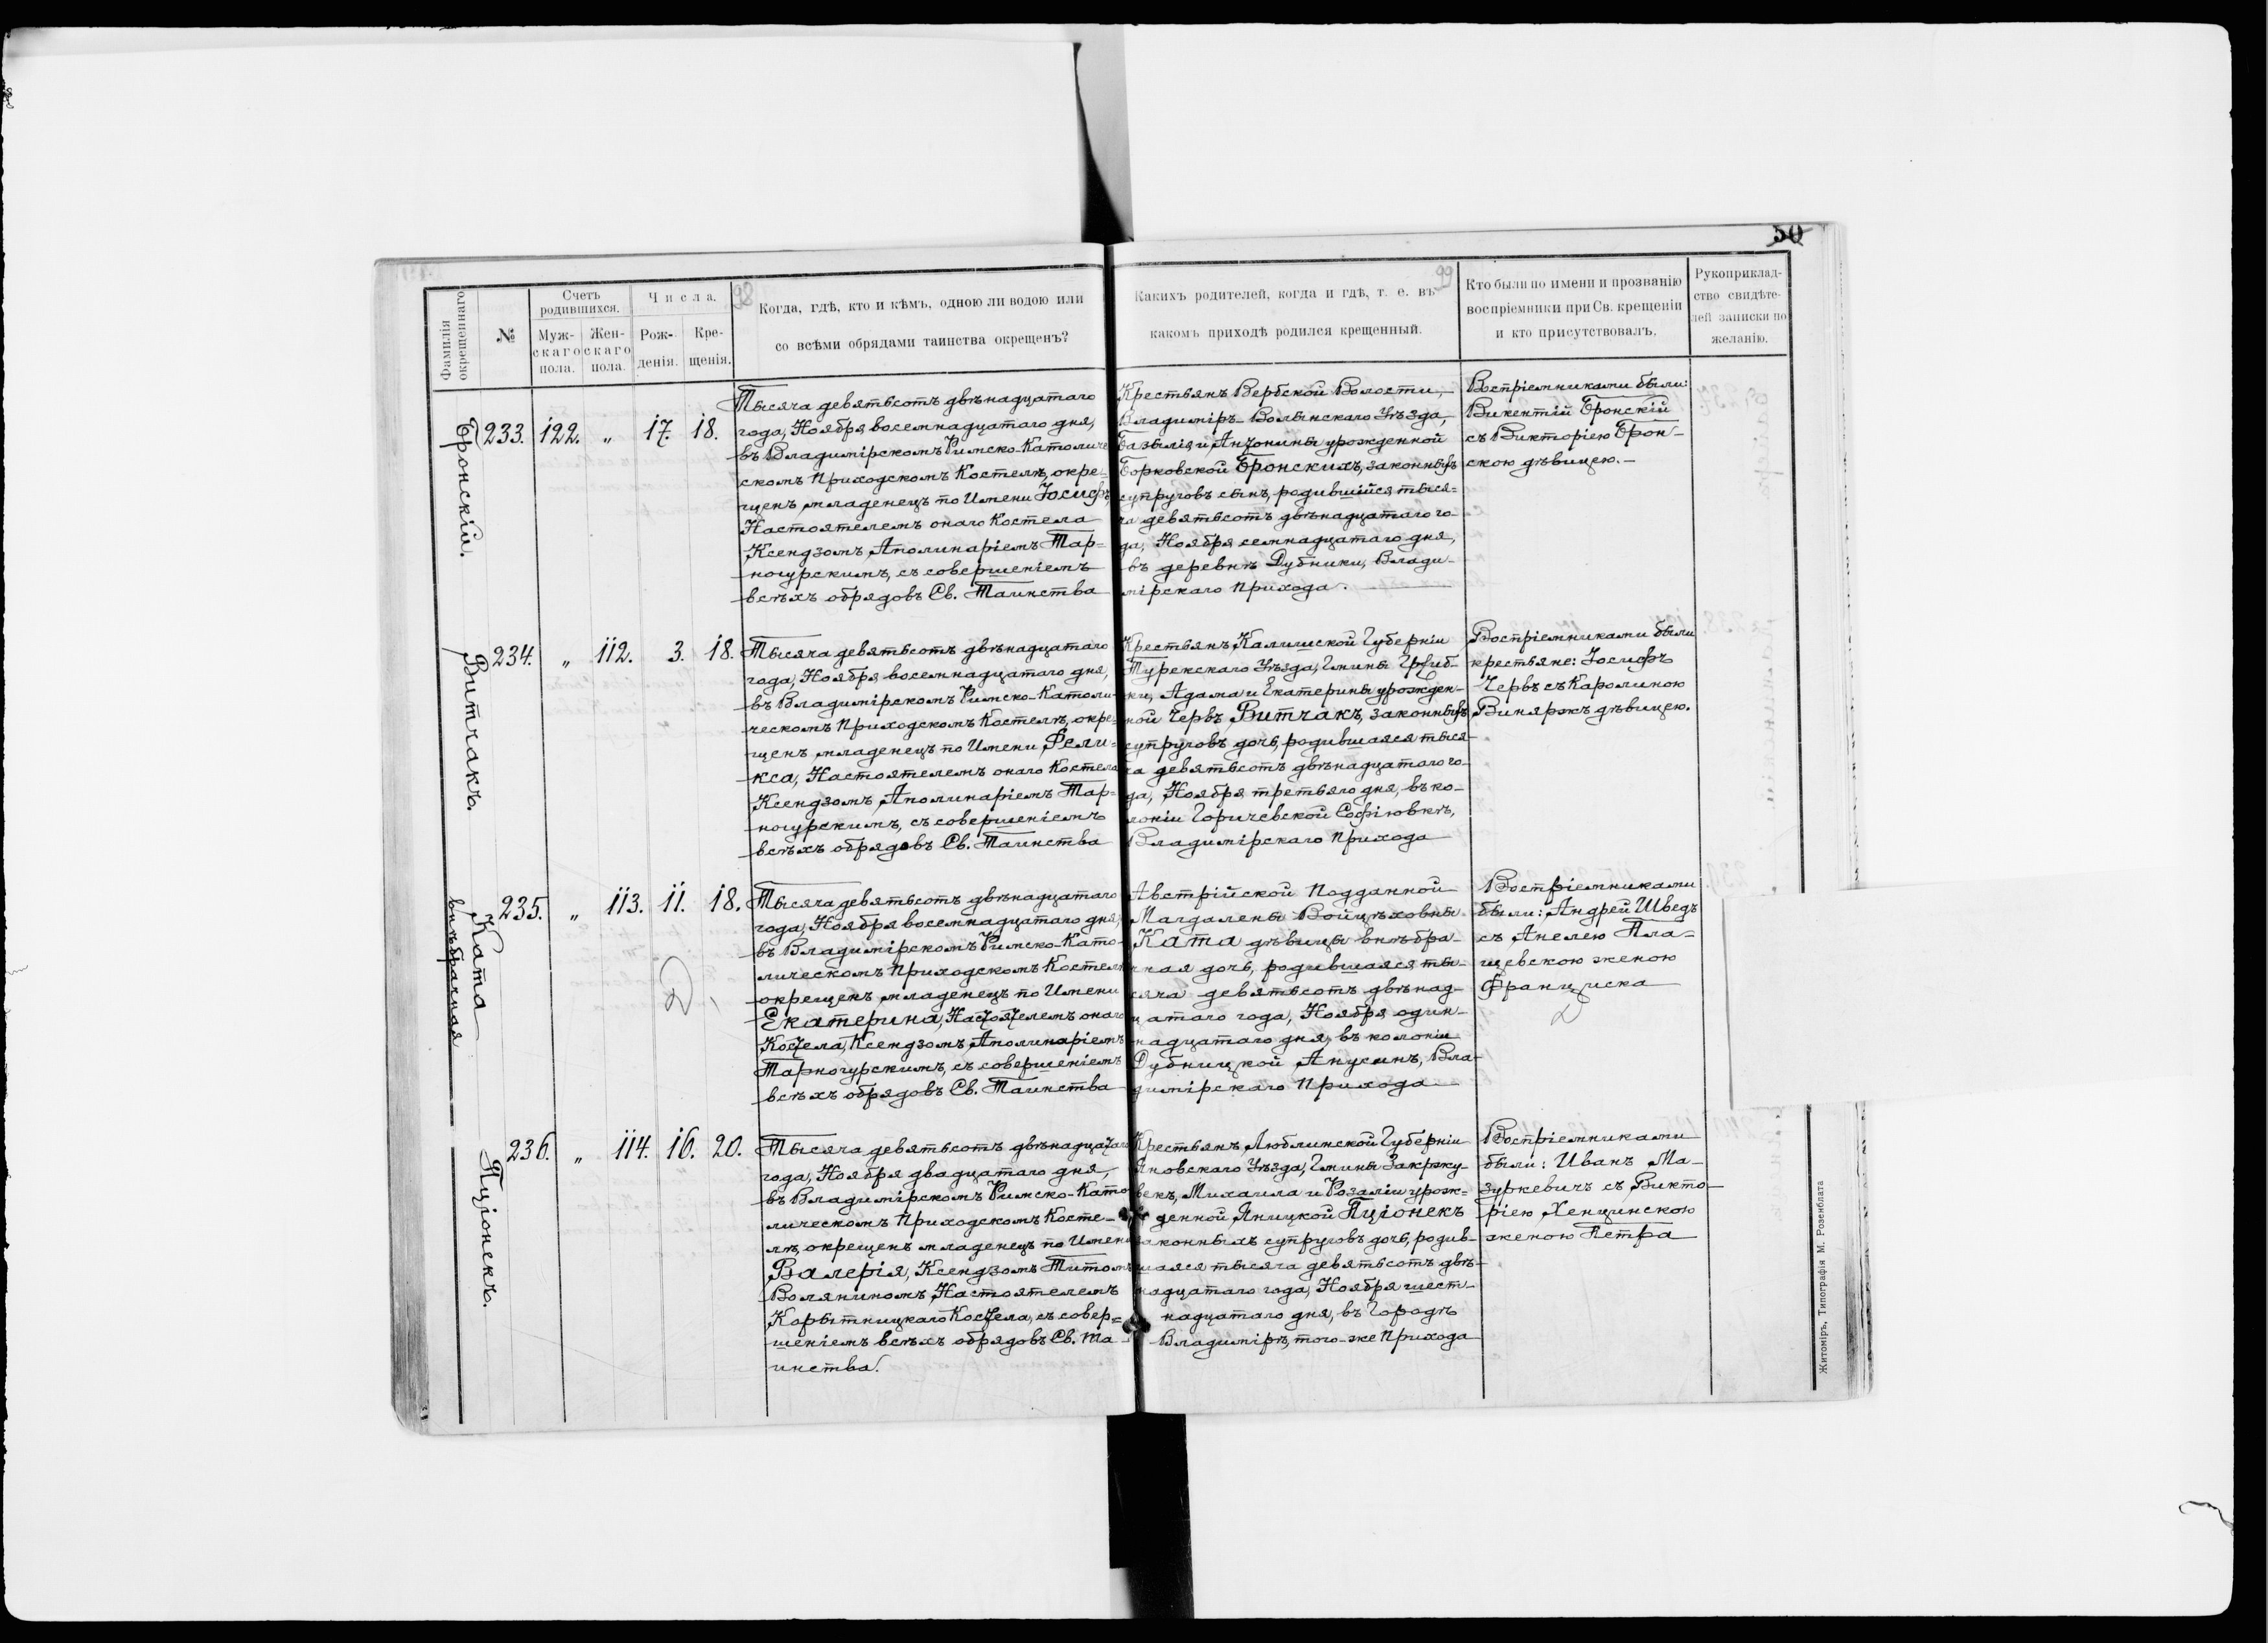 50
98
99
Фамилія окрещеннаго.
№
Счетъ родившихся.
Мужскаго пола.
Женскаго пола.
Числа.
Рожденія.
Крещенія.
Когда, гдѣ, кто и кѣмъ, одною ли водою или
со всѣми обрядами таинства окрещенъ?
Какихъ родителей, когда и гдѣ, т. е. въ
какомъ приходѣ родился крещенный.
Кто были по имени и прозванію
воспріемники при Св. крещеніи
и кто присутствовалъ.
Рукоприклад-
ство свидѣте-
лей записки по
желанію.
Бронскій.
233. 122. „ 17. 18.
Тысяча девятьсотъ двѣнадцатаго
года, Ноября восемнадцатаго дня,
въ Владимірскомъ Римско-Католиче
скомъ Приходскомъ Костелѣ, окре-
щенъ младенецъ по Имени Іосифъ,
Настоятелемъ онаго Костела
Ксендзомъ Аполинаріемъ Тар=
ногурскимъ, съ совершеніемъ
всѣхъ обрядовъ Св. Таинства
Крестьянъ Вербской Волости,
Владиміръ-Волынскаго Уѣзда,
Базылія и Антонины урожденной
Борковской Бронскихъ, законныхъ
супруговъ сынъ, родившійся тыся=
ча девятьсотъ двѣнадцатаго го-
да, Ноября семнадцатаго дня,
въ деревнѣ Дубники, Влади-
мірскаго Прихода.
Воспріемниками были:
Викентій Бронскій
съ Викторіею Брон-
скою дѣвицею.-
Витчакъ.
234. „ 112. 3. 18.
Тысяча девятьсотъ двѣнадцатаго
года, Ноября восемнадцатаго дня,
въ Владимірскомъ Римско-Католи-
ческомъ Приходскомъ Костелѣ, окре=
щенъ младенецъ по Имени Фели=
кса, Настоятелемъ онаго Костела
Ксендзомъ Аполинаріемъ Тар=
ногурскимъ, съ совершеніемъ
всѣхъ обрядовъ Св. Таинства
Крестьянъ Калишской Губерніи
Турекскаго Уѣзда, Гмины Гржиб-
ки, Адама и Екатерины урожден-
ной Червъ Витчакъ, законныхъ
супруговъ дочь, родившаяся тыся-
ча девятьсотъ двѣнадцатаго го-
да, Ноября третьяго дня, въ ко-
лоніи Горичевской Софіювкѣ,
Владимірскаго Прихода
Воспріемниками были
крестьяне: Іосифъ
Червъ съ Каролиною
Виняржъ дѣвицею.
Ката
внѣбрачная
235. „ 113. 11. 18.
Тысяча девятьсотъ двѣнадцатаго
года, Ноября восемнадцатаго дня,
въ Владимірскомъ Римско-Като-
лическомъ Приходскомъ Костелѣ
окрещенъ младенецъ по Имени
Екатерина, Настоятелемъ онаго
Костела, Ксендзомъ Аполинаріемъ
Тарногурскимъ, съ совершеніемъ
всѣхъ обрядовъ Св. Таинства
Австрійской Подданной
Магдалены Войцѣховны
Ката дѣвицы внѣбра-
чная дочь, родившаяся ты-
сяча девятьсотъ двѣнад-
цатаго года, Ноября один-
надцатаго дня, въ колоніи
Дубницкой Анусинъ, Вла-
димірскаго Прихода
Воспріемниками
были: Андрей Шведъ
съ Анелею Пла-
щевскою женою
Франциска
Пціонекъ.
236. „ 114. 16. 20.
Тысяча девятьсотъ двѣнадцатаго
года, Ноября двадцатаго дня,
въ Владимірскомъ Римско-Като
лическомъ Приходскомъ Косте-
лѣ, окрещенъ младенецъ по Имени
Валерія, Ксендзомъ Титомъ
Воляниномъ Настоятелемъ
Корытницкаго Костела, съ совер=
шеніемъ всѣхъ обрядовъ Св. Та-
инства.
Крестьянъ Люблинской Губерніи
Яновскаго Уѣзда, Гмины Закржу-
векъ, Михаила и Розаліи урож=
денной Яницкой Пціонекъ
законныхъ супруговъ дочь, родив-
шаяся тысяча девятьсотъ двѣ-
надцатаго года, Ноября шест-
надцатаго дня, въ Городѣ
Владимірѣ, того-же Прихода
Воспріемниками
были: Иванъ Ма-
зуркевичъ съ Викто-
ріею Хенцинскою
женою Петра
Житоміръ, Типографія М. Розенблата